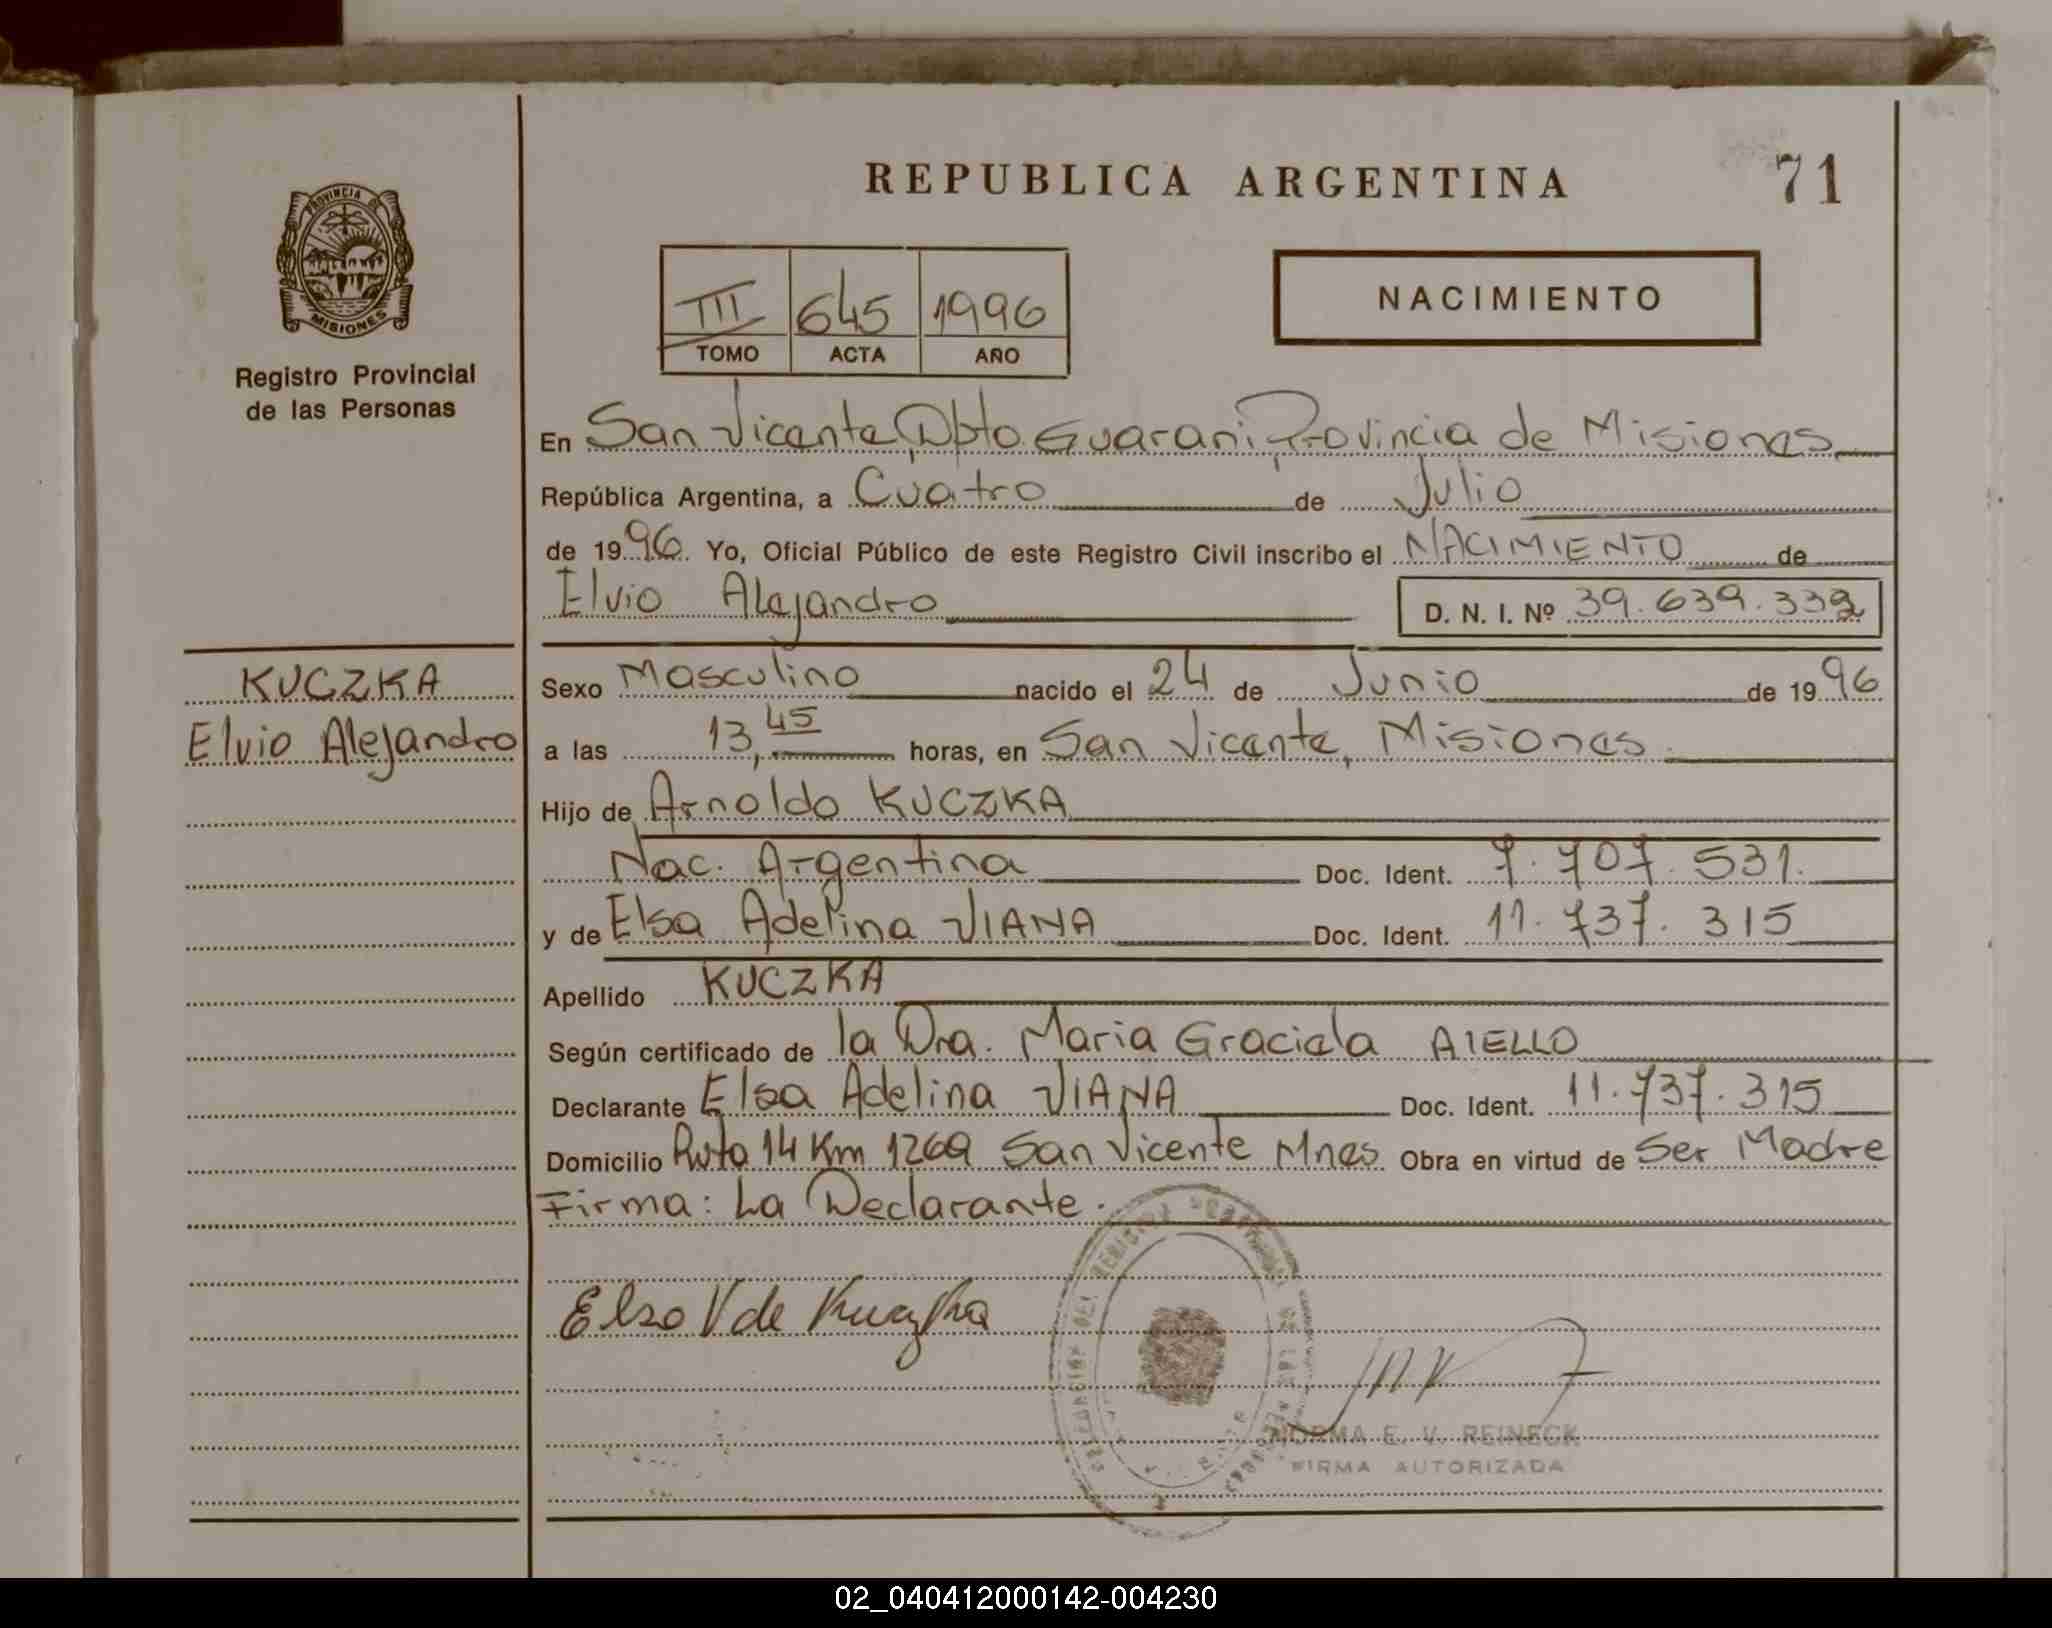 REPUBLICA ARGENTINA
71
PROVINCIA DE
MISIONES
Registro Provincial
de las Personas
III 645 1996
TOMO ACTA AÑO
NACIMIENTO
En San Vicente, Dpto. Guarani, Provincia de Misiones
República Argentina, a Cuatro de Julio
de 1996. Yo, Oficial Público de este Registro Civil inscribo el NACIMIENTO de
Elvio Alejandro D. N. I. Nº 39.639.332
KUCZKA
Elvio Alejandro
Sexo Masculino nacido el 24 de Junio de 1996
a las 13,45 horas, en San Vicente, Misiones.
Hijo de Arnoldo KUCZKA
Nac. Argentina Doc. Ident. 7.707.531.
y de Elsa Adelina VIANA Doc. Ident. 11.737.315
Apellido KUCZKA
Según certificado de la Dra. Maria Graciela AIELLO
Declarante Elsa Adelina VIANA Doc. Ident. 11.737.315
Domicilio Ruta 14 Km 1269 San Vicente Mnes. Obra en virtud de Ser Madre
Firma: La Declarante.
Elsa V de Kuczka
NORMA E. V. REINECK
FIRMA AUTORIZADA
02_040412000142-004230